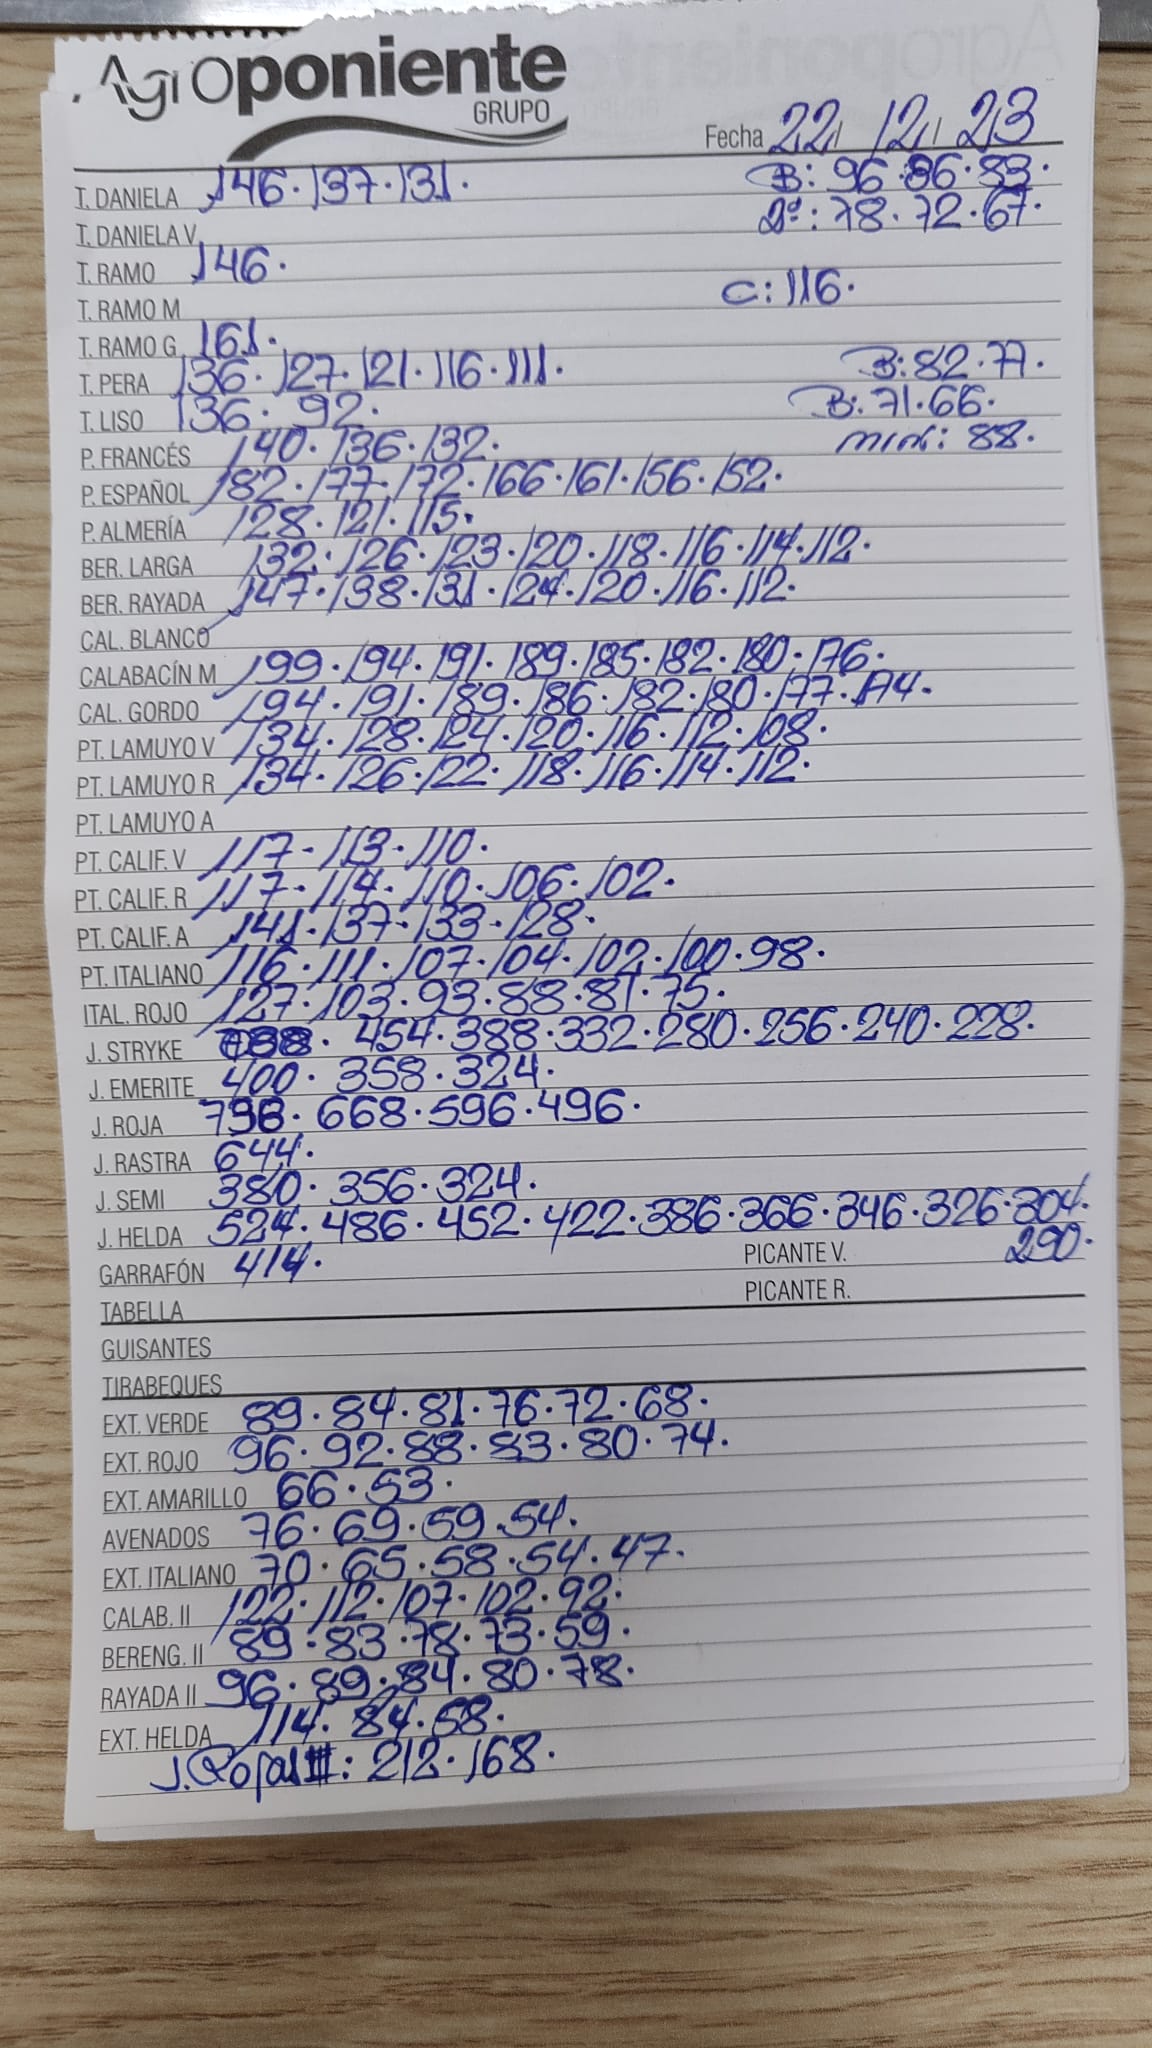 Agroponiente
GRUPO
Fecha 22/ 12/ 23
T. DANIELA 146·137·131· B: 96·86·83·
T. DANIELA V 2ª: 78·72·67·
T. RAMO 146·
T. RAMO M C: 116·
T. RAMO G 161·
T. PERA 136·127·121·116·111· B: 82·77·
T. LISO 136· 92· B: 71·66·
P. FRANCÉS 140·136·132· mini: 88·
P. ESPAÑOL 182·177·172·166·161·156·152·
P. ALMERÍA 128·121·115·
BER. LARGA 132·126·123·120·118·116·114·112·
BER. RAYADA 147·138·131·124·120·116·112·
CAL. BLANCO
CALABACÍN M 199·194·191·189·185·182·180·176·
CAL. GORDO 194·191·189·186·182·180·177·174·
PT. LAMUYO V 134·128·124·120·116·112·108·
PT. LAMUYO R 134·126·122·118·116·114·112·
PT. LAMUYO A
PT. CALIF. V 117·113·110·
PT. CALIF. R 117·114·110·106·102·
PT. CALIF. A 141·137·133·128·
PT. ITALIANO 116·111·107·104·102·100·98·
ITAL. ROJO 127·103·93·88·81·75·
J. STRYKE 454·388·332·280·256·240·228·
J. EMERITE 400·358·324·
J. ROJA 798·668·596·496·
J. RASTRA 644·
J. SEMI 380·356·324·
J. HELDA 524·486·452·422·386·366·346·326·304·
GARRAFÓN 414· PICANTE V. 290·
TABELLA PICANTE R.
GUISANTES
TIRABEQUES
EXT. VERDE 89·84·81·76·72·68·
EXT. ROJO 96·92·88·83·80·74·
EXT. AMARILLO 66·53·
AVENADOS 76·69·59·54·
EXT. ITALIANO 70·65·58·54·47·
CALAB. II 122·112·107·102·92·
BERENG. II 89·83·78·73·59·
RAYADA II 96·89·84·80·78·
EXT. HELDA 114·84·58·
J. Rojas II: 212·168·